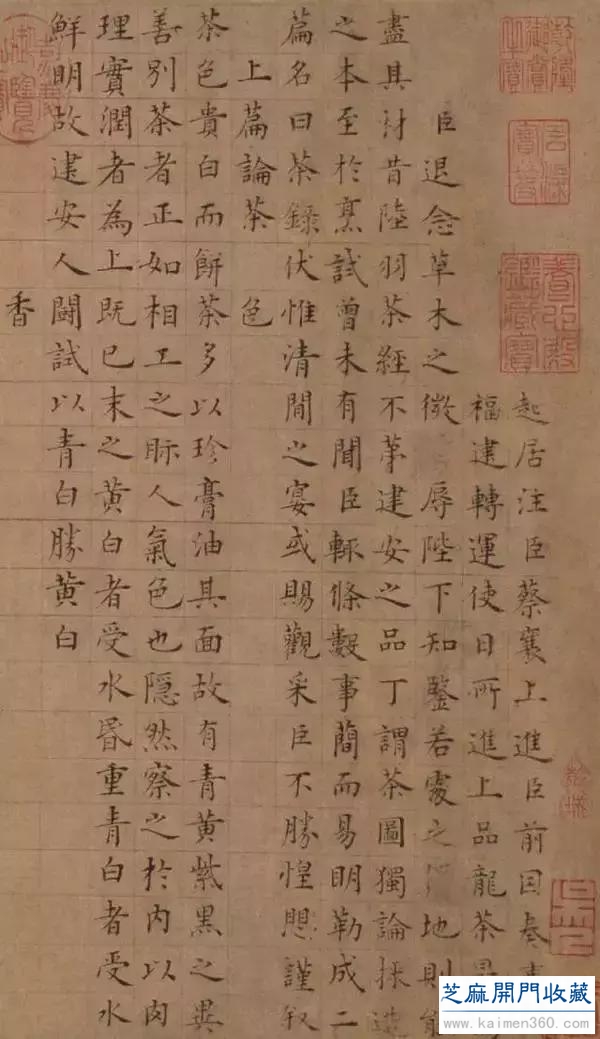 起居注臣蔡襄上進臣前因奏事
福建轉運使日所進上品龍茶最
臣退念草木之微辱陛下知鑒若處之得地則能
盡其材昔陸羽茶經不第建安之品丁謂茶圖獨論採造
之本至於烹試曾未有聞臣輒條數事簡而易明勒成二
篇名曰茶錄伏惟清閒之宴或賜觀采臣不勝惶懼謹叙
上篇論茶 色
茶色貴白而餅茶多以珍膏油其面故有青黃紫黑之異
善別茶者正如相工之眎人氣色也隱然察之於內以肉
理實潤者為上既已末之黃白者受水昏重青白者受水
鮮明故建安人鬭試以青白勝黃白
香
芝麻開門收藏
www.kaimen360.com